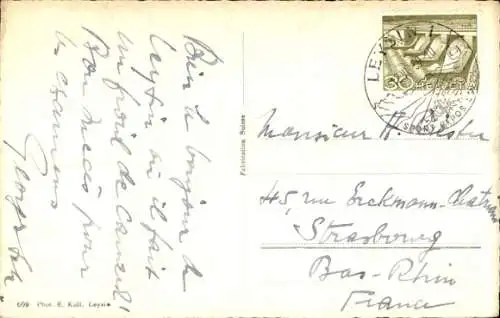 Bien le bonjour de
Leysin où il fait
un froid de canard!
Bon succès pour
les examens
Fabrication Suisse
699 Phot. E. Kull, Leysin
LEYSIN 1
30 HELVETIA
SPORT
Monsieur H.
45, rue Erckmann-Chatrian
Strasbourg
Bas-Rhin
France